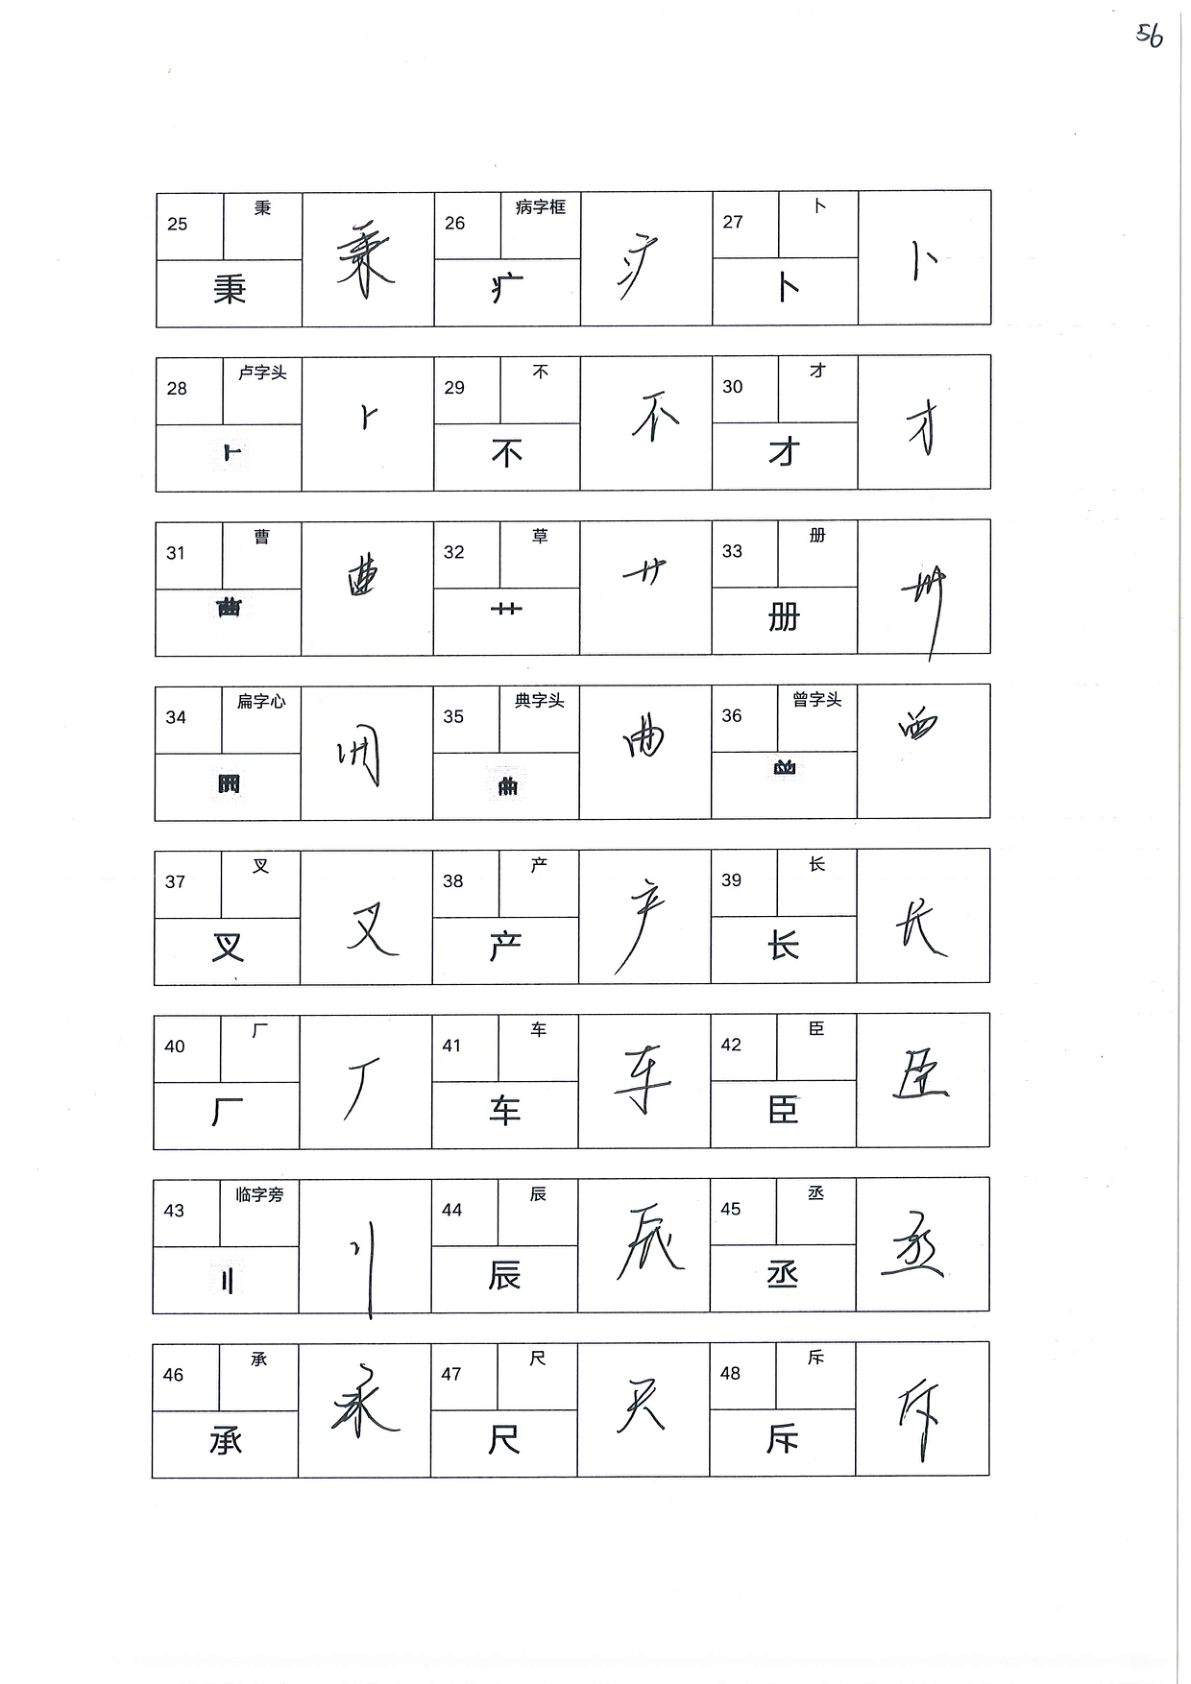 56
25 秉 秉 26 病字框 疒 27 卜 卜
秉 秉 疒 疒 卜 卜
28 卢字头 ⺊ 29 不 不 30 才 才
⺊ 不 才
31 曹 32 草 艹 33 册 册
艹 册
34 扁字心 35 典字头 36 曾字头
37 叉 叉 38 产 产 39 长 长
叉 产 长
40 厂 厂 41 车 车 42 臣 臣
厂 车 臣
43 临字旁 〢 44 辰 辰 45 丞 丞
〢 辰 丞
46 承 承 47 尺 尺 48 斥 斥
承 尺 斥